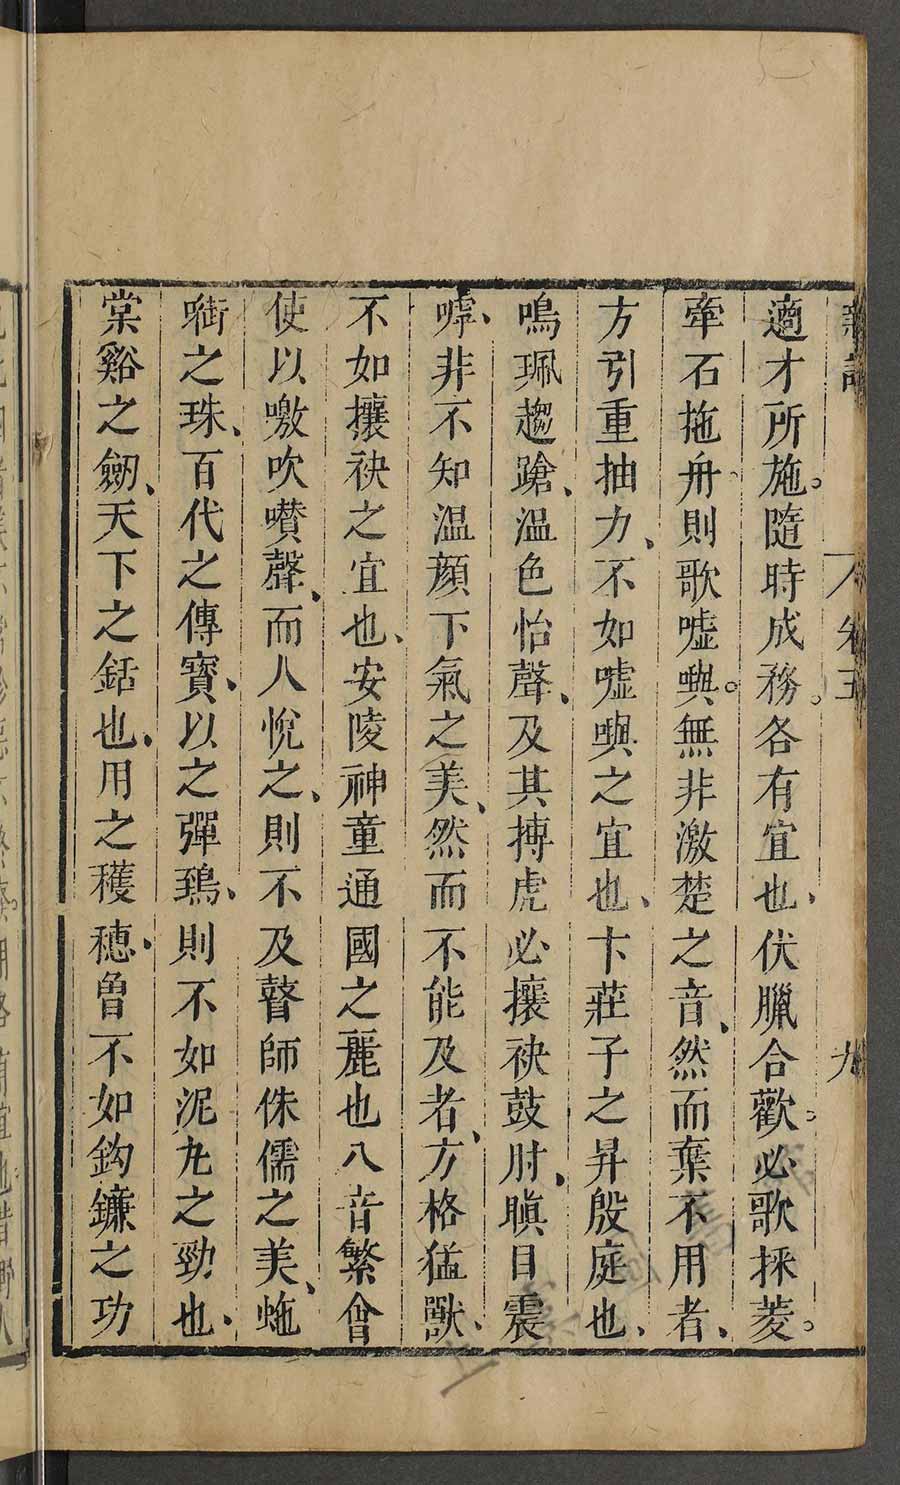 新論 卷五 九
適才所施。隨時成務。各有宜也、伏臘合歡。必歌採菱。
牽石拖舟、則歌噓嘆。無非激楚之音、然而棄不用者、
方引重抽力、不如噓嘆之宜也、卞莊子之昇殷庭也、
鳴珮趨蹌、溫色怡聲、及其搏虎必攘袂鼓肘、瞋目震
嘑、非不知溫顔下氣之美、然而不能及者、方格猛獸、
不如攘袂之宜也、安陵神童通國之麗也八音繁會
使以噭吹嚽聲、而人悅之、則不及瞽師侏儒之美、虵
銜之珠、百代之傳寶、以之彈鵶、則不如泥丸之勁也、
棠谿之劒、天下之銛也、用之穫穗、曾不如鈎鐮之功